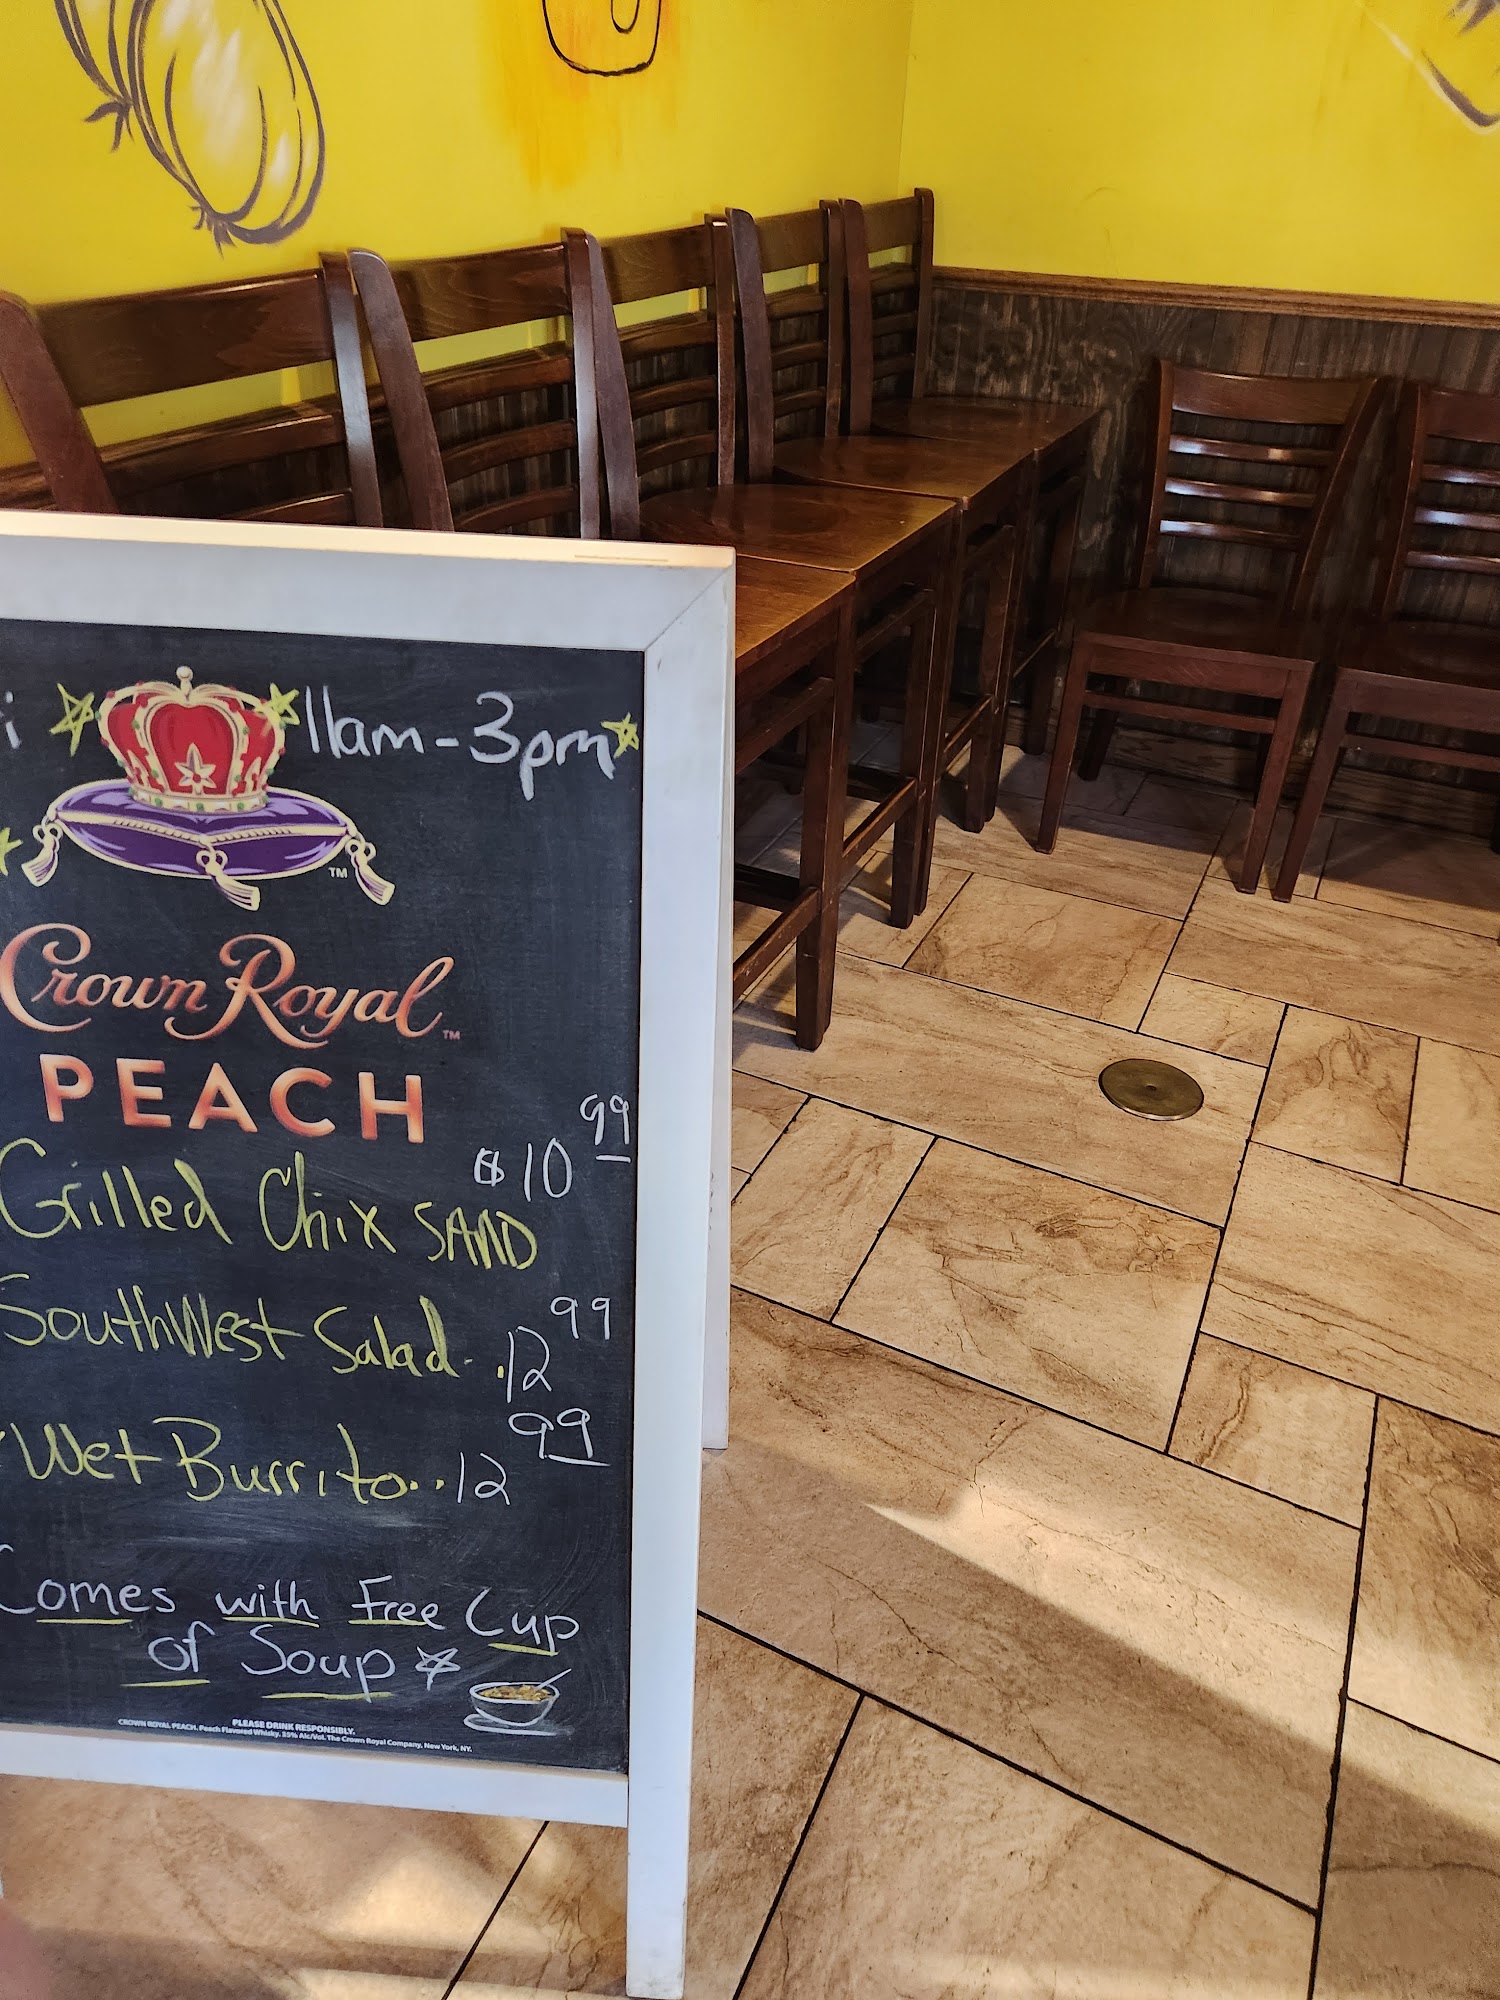 11am-3pm
TM
Crown Royal™
PEACH
$10 99
Grilled Chix SAND
SouthWest Salad . .12 99
Wet Burrito . . 12 99
Comes with Free Cup
of Soup
PLEASE DRINK RESPONSIBLY.
CROWN ROYAL PEACH. Peach Flavored Whisky. 35% Alc/Vol. The Crown Royal Company, New York, NY.